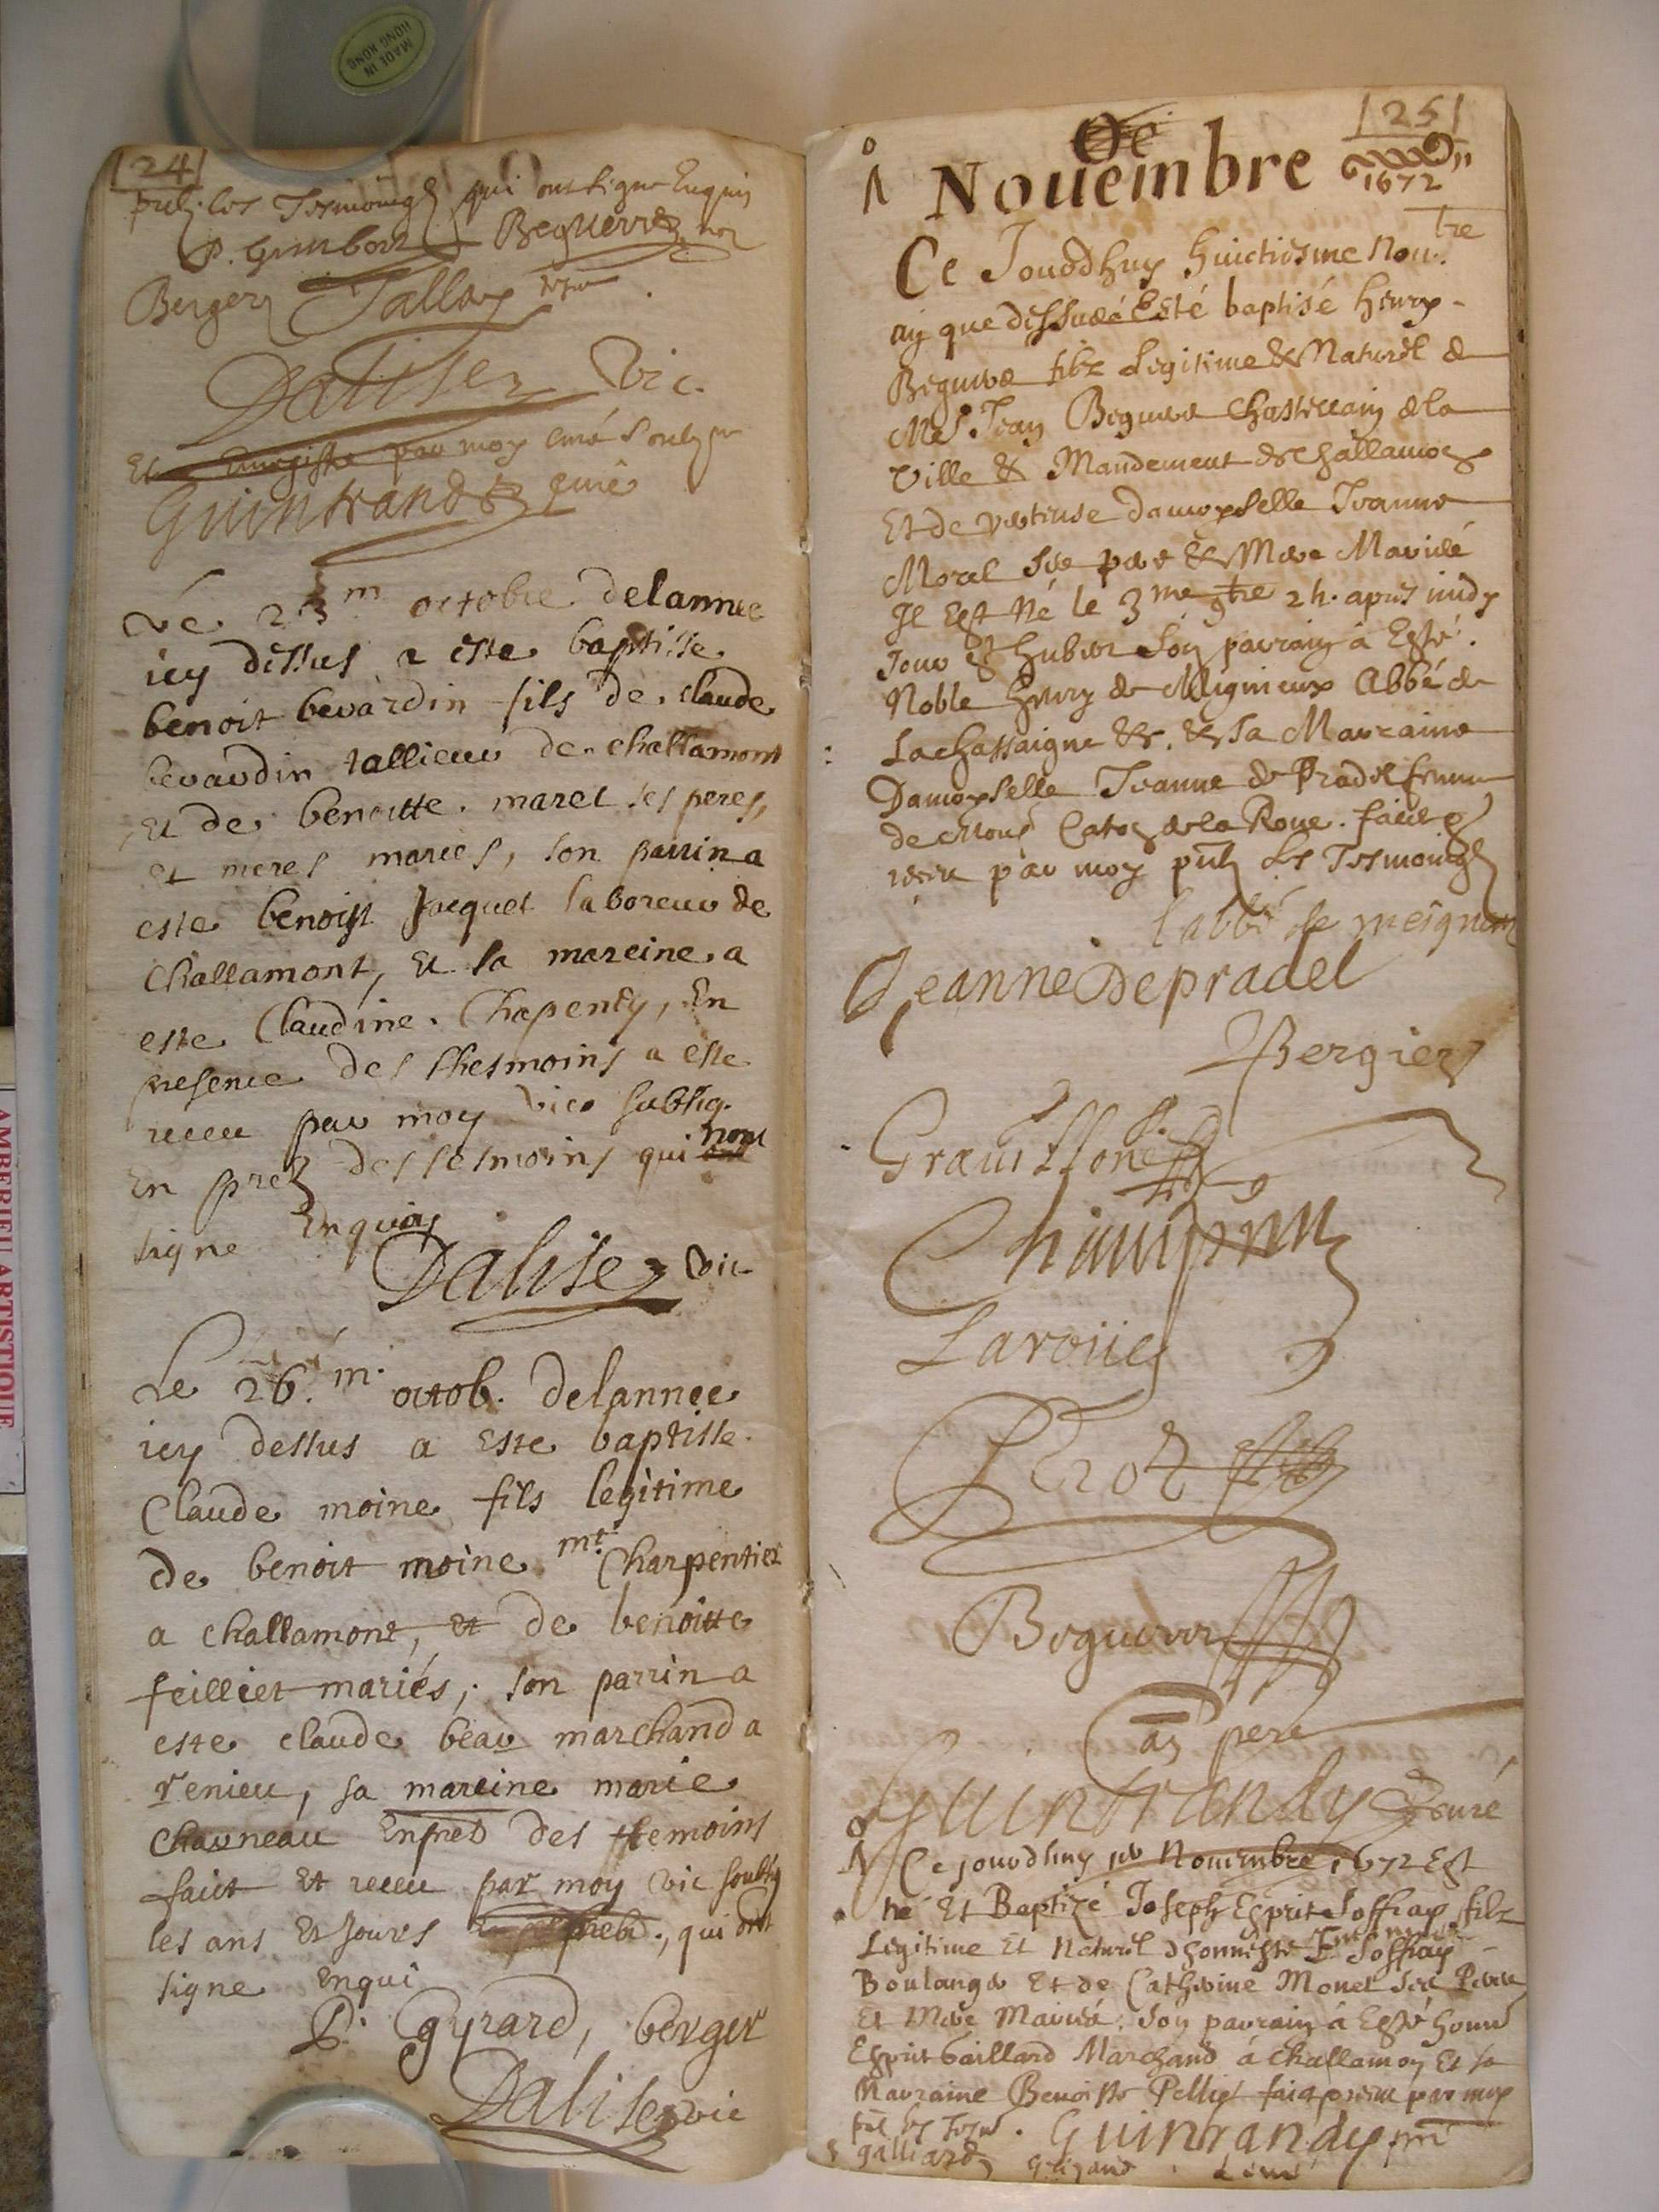 MADE IN
HONG KONG
AMBERIEU ARTISTIQUE
24
les Tesmoings qui ont signe Enquis
P. Gimbert Beguerre
Berger Tallox
Dalisez Vic.
Et Enregistre par moy curé
Guintrandy curé
Le 23m octobre delannee
icy dessus a este baptisse
benoit bevardin fils de claude
bevardin tallieur de challamont
Et de benoitte maret ses peres,
et meres mariés, son parrin a
este benoist Jacquet laboreur de
Challamont, Et sa mareine a
este Claudine Chapendy, En
presence des thesmoins a este
receu par moy vice subsig.
En prez des tesmoins qui nont
signe Enquis
Dalisez Vic
Le 26.m. octob. delannee
icy dessus a Este baptisse
Claude moine fils legitime
de benoit moine mt. Charpentier
a challamont, et de benoitte
feilliet mariés, son parrin a
este claude beau marchand a
renieu, sa mareine marie
chavneau Enpres des ttemoins
faict Et receu par moy vic soubsg
les ans Et Jours, qui ont
signe Enqui
P. Gyrard, berger
Dalisez vic
25
Nouembre 1672
Ce Jourdhuy huictiesme Nou.tre
an que dessus à Esté baptisé henry
Beguerre filz Legitime & Naturel de
Me Jean Beguerre Chastellain de la
Ville & Mandement de Challamont
Et de vertueuse damoyselle Jeanne
Morel Ses pere & Mere Mariés
Il Est Né le 3me 9tre 2 h. apres midy
Jour St hubert Son parrain à Esté
Noble henry de Meignieux Abbé de
Lachassaigne &c. & sa Marraine
Damoyselle Jeanne de Pradel femme
de La Roue. faict &
receu par moy Les Tesmoings
labbé de meignieu
Jeanne Depradel
Bergier
Grauillon
Champ
Laroüe
Perot
Beguerre
pere
Guintrandy Curé
Ce jourdhuy Nouembre 1672 Est
né Et Baptizé Joseph Esprit Joffray filz
Legitime Et Naturel dhonneste Joffray
Boulanger Et de Catherine Monet Ses Pere
Et Mere Mariés. Son parrain à Esté honn
Esprit Gaillard Marchand à Challamon Et sa
Marraine Benoiste faict & receu par moy
les Tesm. Guintrandy
galliard